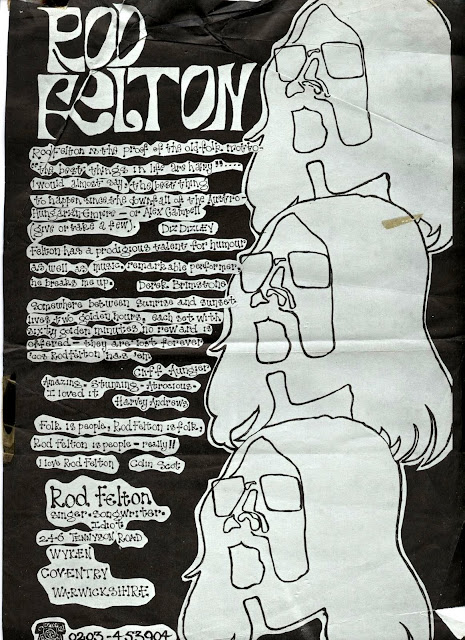 ROD
FELTON
Rod Felton is the proof of the old folk motto
"the best things in life are hairy".....
I would almost say the best thing
to happen since the downfall of the Austro-
Hungarian Empire - or Alex Campbell
(give or take a few). Diz Dizley
Felton has a prodigious talent for humour
as well as music, remarkable performer,
he breaks me up. Derek Brimstone
Somewhere between sunrise and sunset
lives two golden hours, each set with
sixty golden minutes no reward is
offered - they are lost forever
'cos Rod Felton has 'em
Cliff Aungier
Amazing - Stunning - Atrocious -
I loved it
Harvey Andrews
Folk is people, Rod Felton is folk,
Rod Felton is people - really!!
I love Rod Felton Colin Scot
Rod Felton
singer-songwriter-
Idiot
246 TENNYSON ROAD
WYKEN
COVENTRY
WARWICKSHIRE
0203-453904